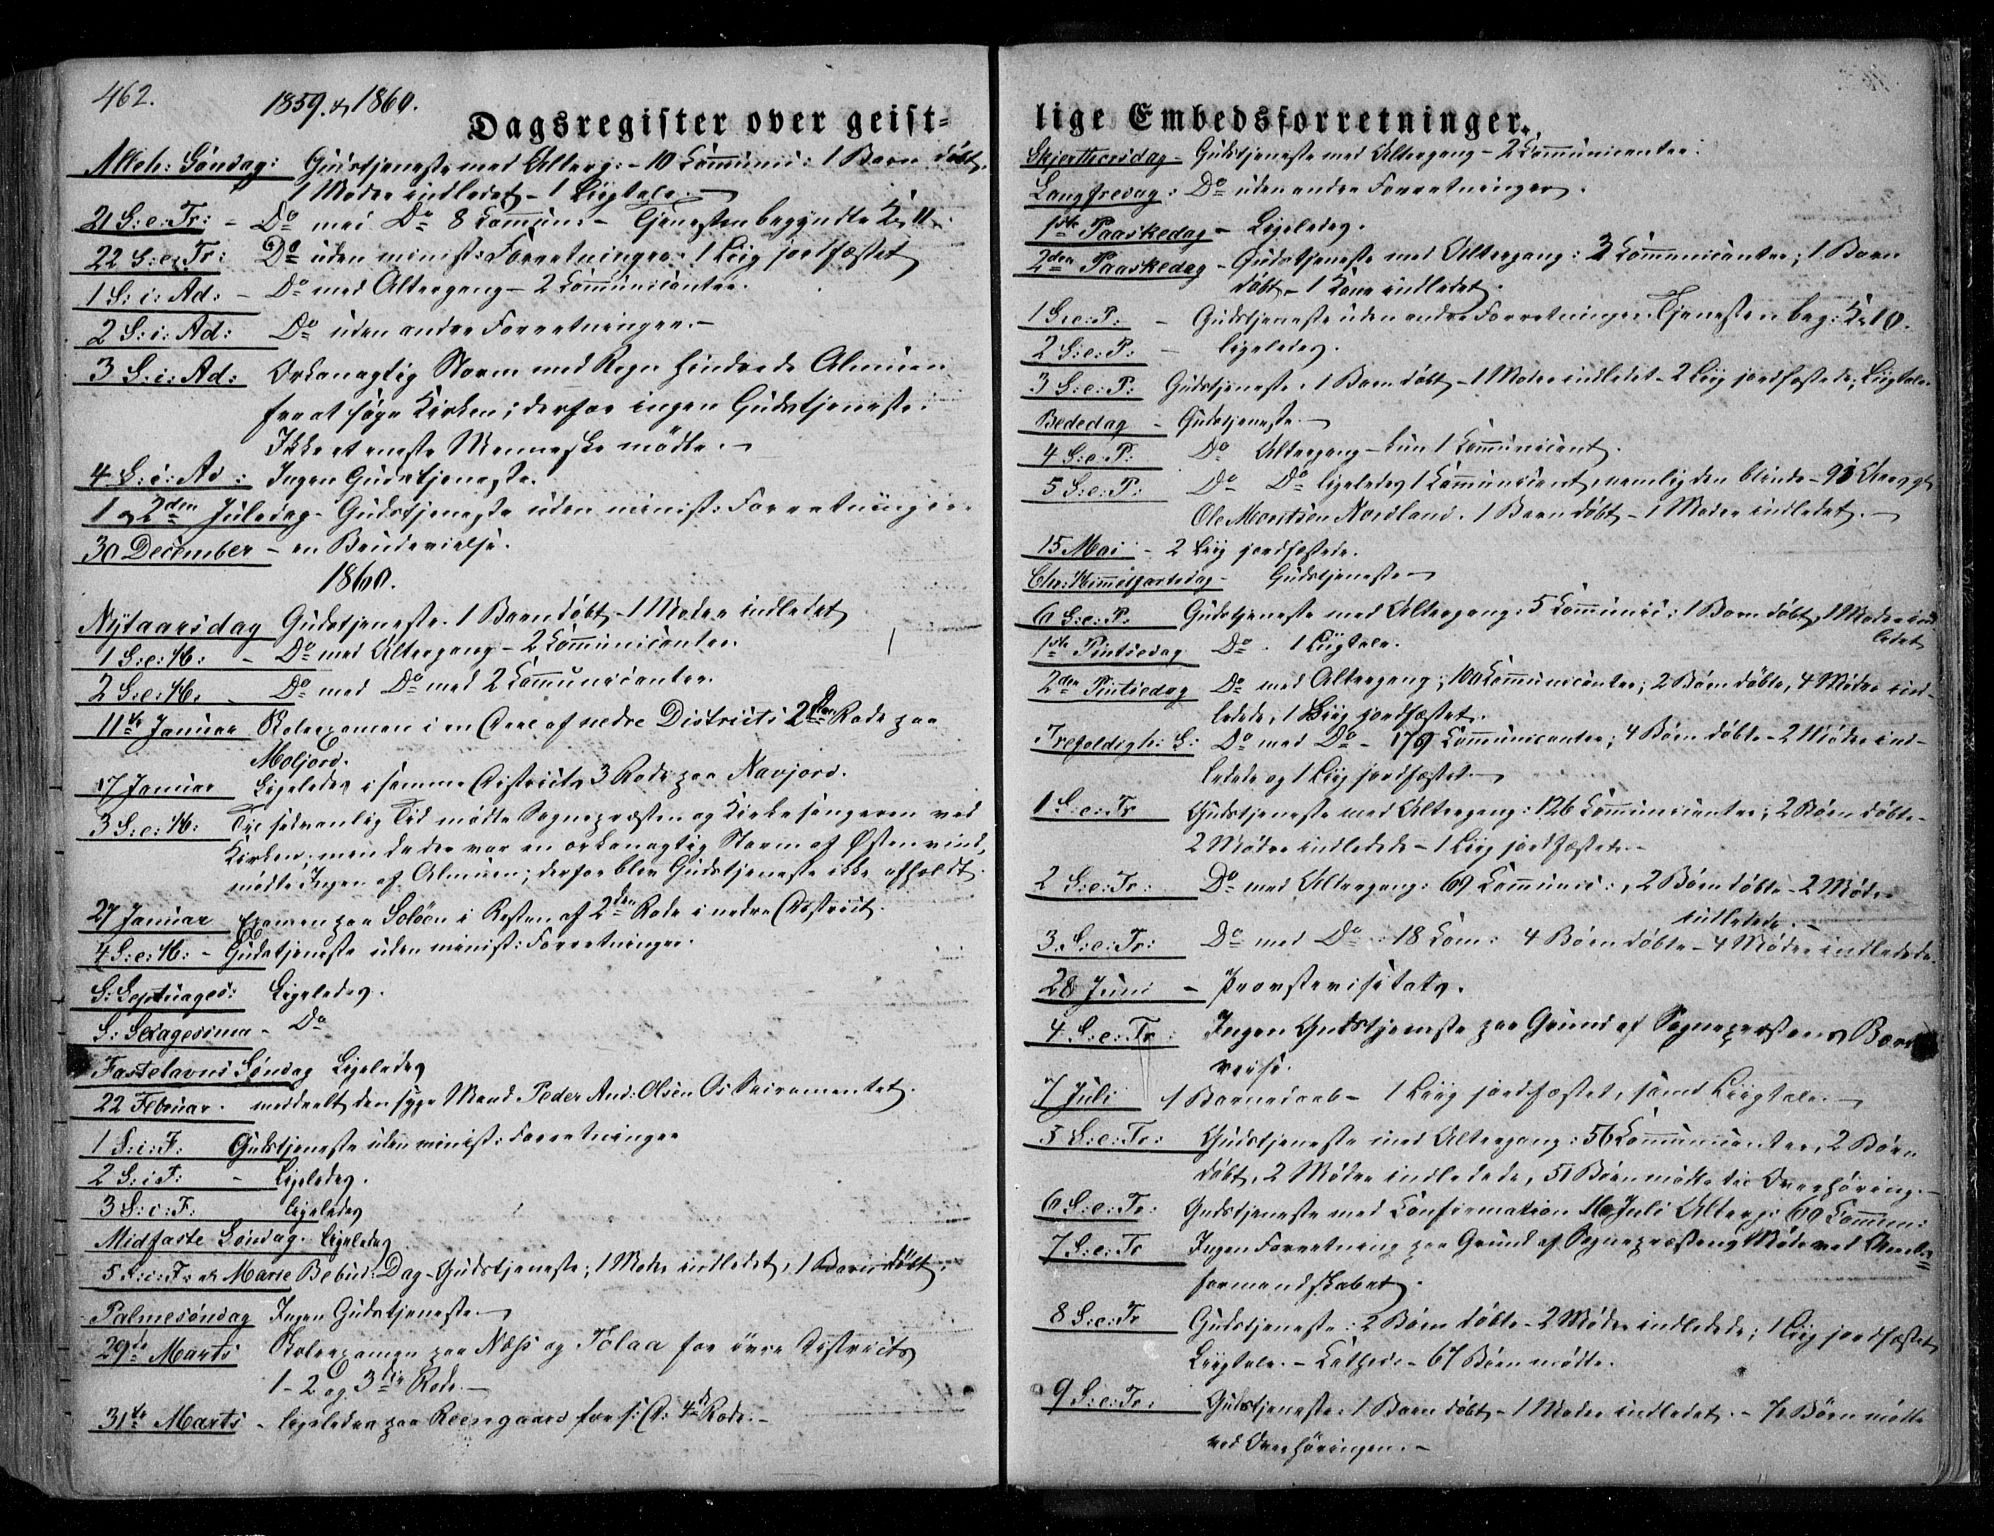 462.
1859. & 1860.
Dagsregister over geist-
Alleh: Søndag: Gudstjeneste med Alterg: - 10 Communi: 1 Barn døbt.
1 Moder indledet - 1 Liigtale. -
21 S: e: Tr: - Do med Do 8 Commun: - Tjenesten begyndte Kl. 11.
22 S: e: Tr: Do uden minist: Forretninger. 1 Liig jordfæstet
1 S: i: Ad: - Do med Altergang - 2 Communicanter.
2 S: i: Ad: Do uden andre Forretninger. -
3 S: i: Ad: Orkanagtig Storm med Regn hindrede Almuen
fra at søge Kirken; derfor ingen Gudstjeneste.
Ikke et eneste Menneske mødte. -
4 S: i: Ad: Ingen Gudstjeneste.
1 og 2den Juledag - Gudstjeneste uden minist: Forretninger.
30 December - en Brudevielse.
1860.
Nytaarsdag Gudstjeneste. 1 Barn døbt - 1 Moder indledet
1 S: e: H: - Do med Altergang - 2 Communicanter.
2 S: e: H: - Do med Do med 2 Communicanter.
11te Januar Skoleexamen i en Deel af nedre Districts 2den Rode paa
Moljord.
17 Januar Ligeledes i samme Districts 3 Rode paa Navjord.
3 S: e: H: Til sædvanlig Tid mødte Sognepræsten og Kirkesangeren ved
Kirken; men da der var en orkanagtig Storm af Østenvind,
mødte Ingen af Almuen; derfor blev Gudstjeneste ikke afholdt.
27 Januar Examen paa Soløen i Resten af 2den Rode i nedre District.
4 S: e: H: - Gudstjeneste uden minist: Forretninger.
S: Septuages: Ligeledes.
S: Sexagesima - Do
Fastelavns Søndag Ligeledes
22 Februar. meddeelt den syge Mand Peder And: Olsen Os Sacramentet.
1 S: i: F. Gudstjeneste uden minist: Forretninger
2 S: i F: - Ligeledes.
3 S: i: F: Ligeledes
Midfaste Søndag. Ligeledes
5 S: i: F: & Marie Bebud: Dag - Gudstjeneste; 1 Moder indledet, 1 Barn døbt.
Palmesøndag Ingen Gudstjeneste. -
29de Marts Skoleexamen paa Næss og Tolaa for øvre Districts
1 - 2 og 3die Rode. -
31te Marts - ligeledes paa Reengaard for s: D: 4de Rode. -
lige Embedsforretninger.
Skjerthorsdag - Gudstjeneste med Altergang - 2 Communicanter.
Langfredag: Do uden andre Forretninger.
1ste Paaskedag - Ligeledes.
2den Paaskedag - Gudstjeneste med Altergang: 3 Communicanter; 1 Barn
døbt - 1 Kone indledet.
1 S: e: P: - Gudstjeneste uden andre Forretninger. Tjenesten beg: Kl. 10.
2 S: e: P: - Ligeledes.
3 S: e: P: Gudstjeneste. 1 Barn døbt - 1 Moder indledet - 2 Liig jordfæstede; Liigtale.
Bededag - Gudstjeneste. -
4 S: e: P: Do Altergang - kun 1 Communicant.
5 S: e: P: Do Do ligeledes 1 Communicant, nemlig den blinde
Ole Moritsen Nordland. 1 Barn døbt - 1 Moder indledet. -
15 Mai - 2 Liig jordfæstede.
Chr: Himmelfartsdag - Gudstjeneste -
6 S: e: P. Gudstjeneste med Altergang: 5 Communi: 1 Barn døbt, 1 Moder ind-
ledet
1ste Pintsedag Do. 1 Liigtale.
2den Pintsedag Do med Altergang; 100 Communicanter; 2 Børn døbte, 4 Mødre ind-
ledede, 1 Liig jordfæstet.
Trefoldigh: S: Do med Do - 179 Communicanter; 4 Børn døbte - 2 Mødre ind-
ledede og 1 Liig jordfæstet. -
1 S: e: Tr Gudstjeneste med Altergang: 126 Communicanter; 2 Børn døbte -
2 Mødre indledede - 1 Liig jordfæstede. -
2 S: e: Tr: Do med Altergang: 69 Communi:, 2 Børn døbte - 2 Mødre
indledede. -
3. S: e: Tr: Do med Do : 18 Com: 4 Børn døbte - 4 Mødre indledede.
28 Juni - Provstevisitats.
4. S: e: Tr: Ingen Gudstjeneste paa Grund af Sognepræstens
reise.
7 Juli 1 Barnedaab - 1 Liig jordfæstet, samt Liigtale. -
5 S: e: Tr: Gudstjeneste med Altergang: 56 Communicanter, 2 Børn
døbt, 2 Mødre indledede, 51 Børn mødte til Overhøring. -
6 S: e: Tr: Gudstjeneste med Confirmation Juli Alterg: 69 Commun:
7 S: e: Tr Ingen Forretning paa Grund af Sognepræstens Møde ved Amts-
formandskabet.
8 S: e: Tr Gudstjeneste: 2 Børn døbte - 2 Mødre indledede; 1 Liig jordfæstet
Liigtale. - Cathec: - 67 Børn mødte.
9 S: e: Tr: Gudstjeneste: 1 Barn døbt - 1 Moder indledet. - Børn mødte
ved Overhøringen. -